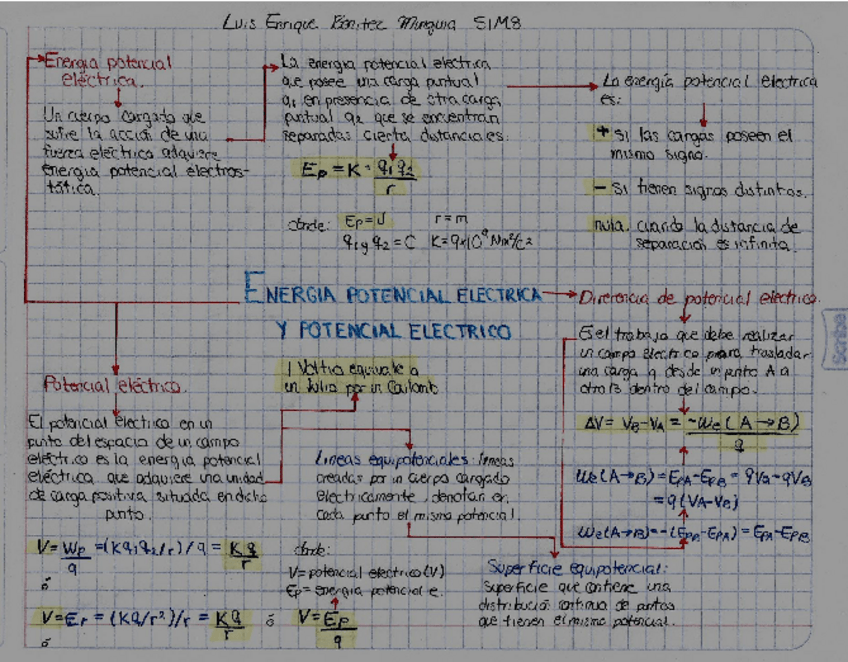 Luis Enrique Benitez Munguia 51M8
Energia potencial
eléctrica.
Un cuerpo cargado que
sufre la acción de una
fuerza eléctrica adquiere
energia potencial electros-
tática.
La energia potencial eléctrica
que posee una carga puntual
q1 en presencia de otra carga
puntual q2 que se encuentran
separadas cierta distancia es:
Ep = K · q1 q2
r
donde: Ep = J r = m
q1 y q2 = C K = 9x10⁹ Nm²/c²
La energía potencial electrica
es:
+ si las cargas poseen el
mismo signo.
- Si tienen signos distintos.
nula. cuando la distancia de
separación es infinita.
ENERGIA POTENCIAL ELECTRICA
Y POTENCIAL ELECTRICO
Diferencia de potencial eléctrico.
Es el trabajo que debe realizar
un campo electrico para trasladar
una carga q desde un punto A a
otro B dentro del campo.
ΔV = VB - VA = -We (A → B)
q
We (A→B) = EPA - EPB = qVA - qVB
= q (VA - VB)
We (A→B) = -(EPB - EPA) = EPA - EPB
Potencial eléctrico.
El potencial electrico en un
punto del espacio de un campo
eléctrico es la energía potencial
eléctrica que adquiere una unidad
de carga positiva situada en dicho
punto.
V = Wp = (K q1 q2/r) / q = K q
q r
ó
V = Er = (Kq/r²)/r = K q ó V = Ep
r q
ó
1 Voltio equivale a
un Julio por un Coulomb
Lineas equipotenciales: lineas
creadas por un cuerpo cargado
electricamente, denotan en
cada punto el mismo potencial.
donde:
V = potencial electrico (V)
Ep = energia potencial e.
Superficie equipotencial:
Superficie que contiene una
distribución continua de puntos
que tienen el mismo potencial.
Scribe